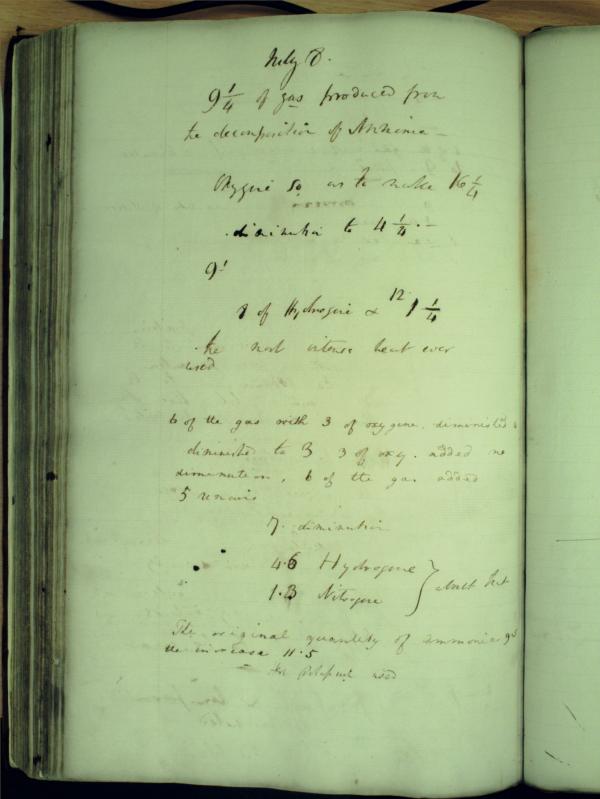 July 8.
9 1/4 of gas produced from
the decomposition of Ammonia -
Oxygene so as to make 16 1/4
diminution to 4 1/4. -
9'
8 of Hydrogene & 12 1 1/4
the most intense heat ever
used
6 of the gas with 3 of oxygene. diminished
diminished to 3. 3 of oxy. added no
dimenution, 6 of the gas added
5 remains
7. diminution
4.6 Hydrogene
1.3 Nitrogene
The original quantity of ammonia 9.5
the increase 11.5
used